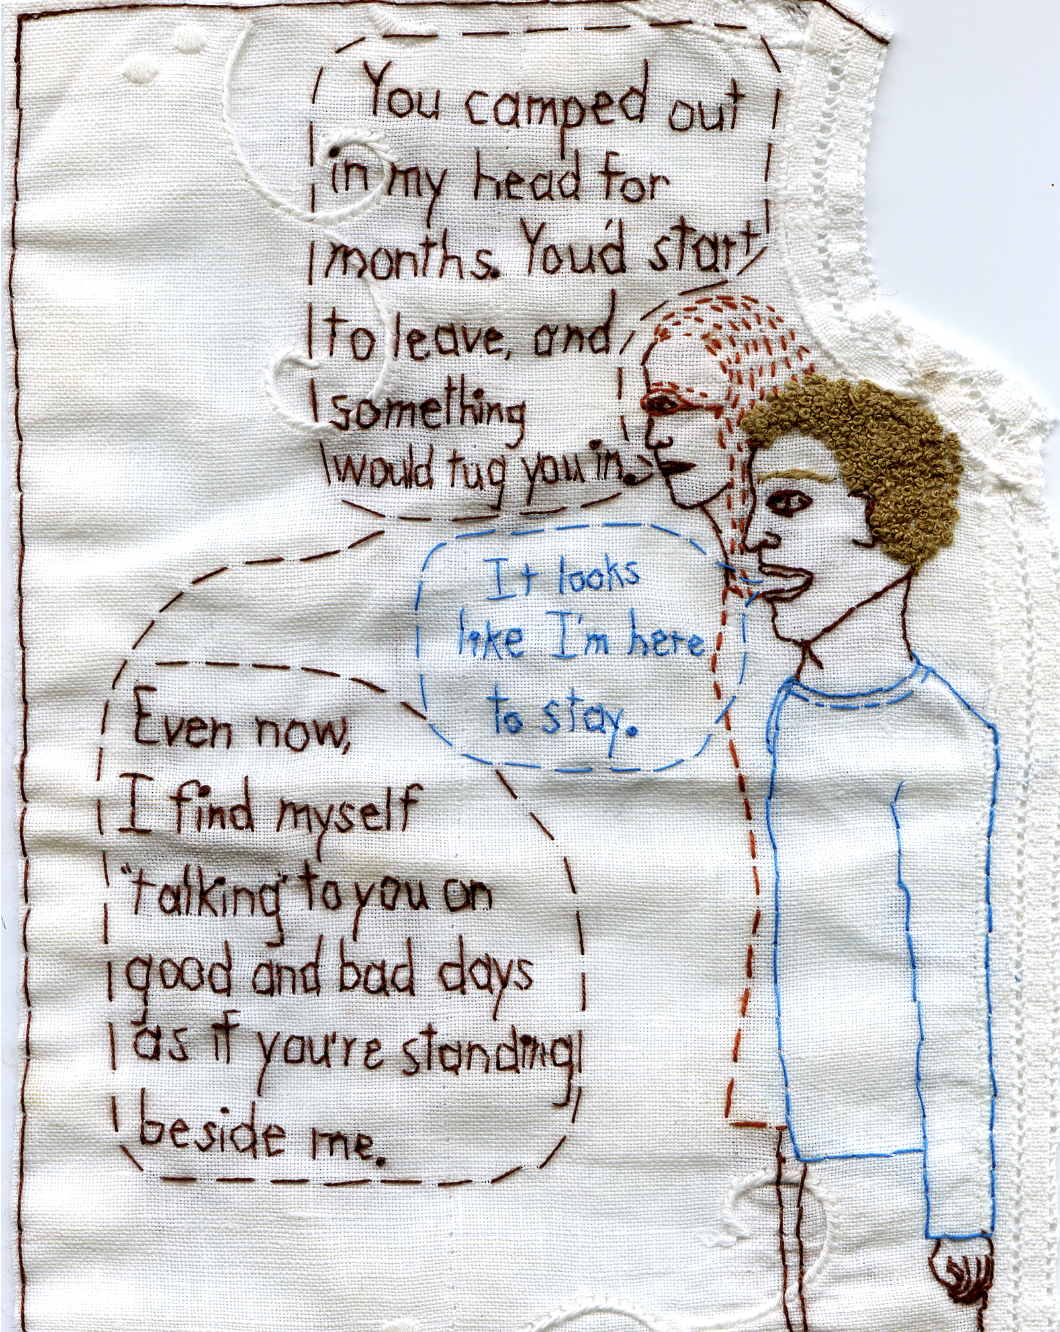 You camped out
in my head for
months. You'd start
to leave, and
something
would tug you in.
It looks
like I'm here
to stay.
Even now,
I find myself
"talking" to you on
good and bad days
as if you're standing
beside me.